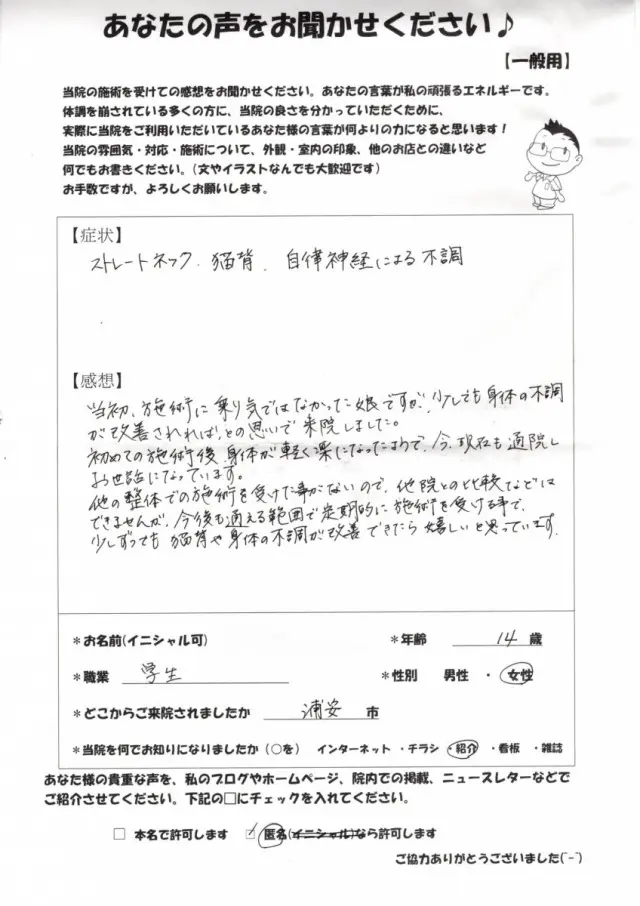 あなたの声をお聞かせください♪
【一般用】
当院の施術を受けての感想をお聞かせください。あなたの言葉が私の頑張るエネルギーです。
体調を崩されている多くの方に、当院の良さを分かっていただくために、
実際に当院をご利用いただいているあなた様の言葉が何よりの力になると思います！
当院の雰囲気・対応・施術について、外観・室内の印象、他のお店との違いなど
何でもお書きください。(文やイラストなんでも大歓迎です)
お手数ですが、よろしくお願いします。
【症状】
ストレートネック．猫背．自律神経による不調
【感想】
当初、施術に乗り気ではなかった娘ですが、少しでも身体の不調
が改善されれば、との思いで来院しました。
初めての施術後、身体が軽く楽になったようで、今現在も通院し
お世話になっています。
他の整体での施術を受けた事がないので、他院との比較などは
できませんが、今後も通える範囲で定期的に施術を受ける事で、
少しずつでも猫背や身体の不調が改善できたら嬉しいと思っています.
＊お名前(イニシャル可) ＊年齢 14 歳
＊職業 学生 ＊性別 男性 ・ 女性
＊どこからご来院されましたか 浦安 市
＊当院を何でお知りになりましたか (○を) インターネット ・チラシ ・紹介 ・看板 ・雑誌
あなた様の貴重な声を、私のブログやホームページ、院内での掲載、ニュースレターなどで
ご紹介させてください。下記の□にチェックを入れてください。
□ 本名で許可します ☑ 匿名(イニシャル)なら許可します
ご協力ありがとうございました(^-^)